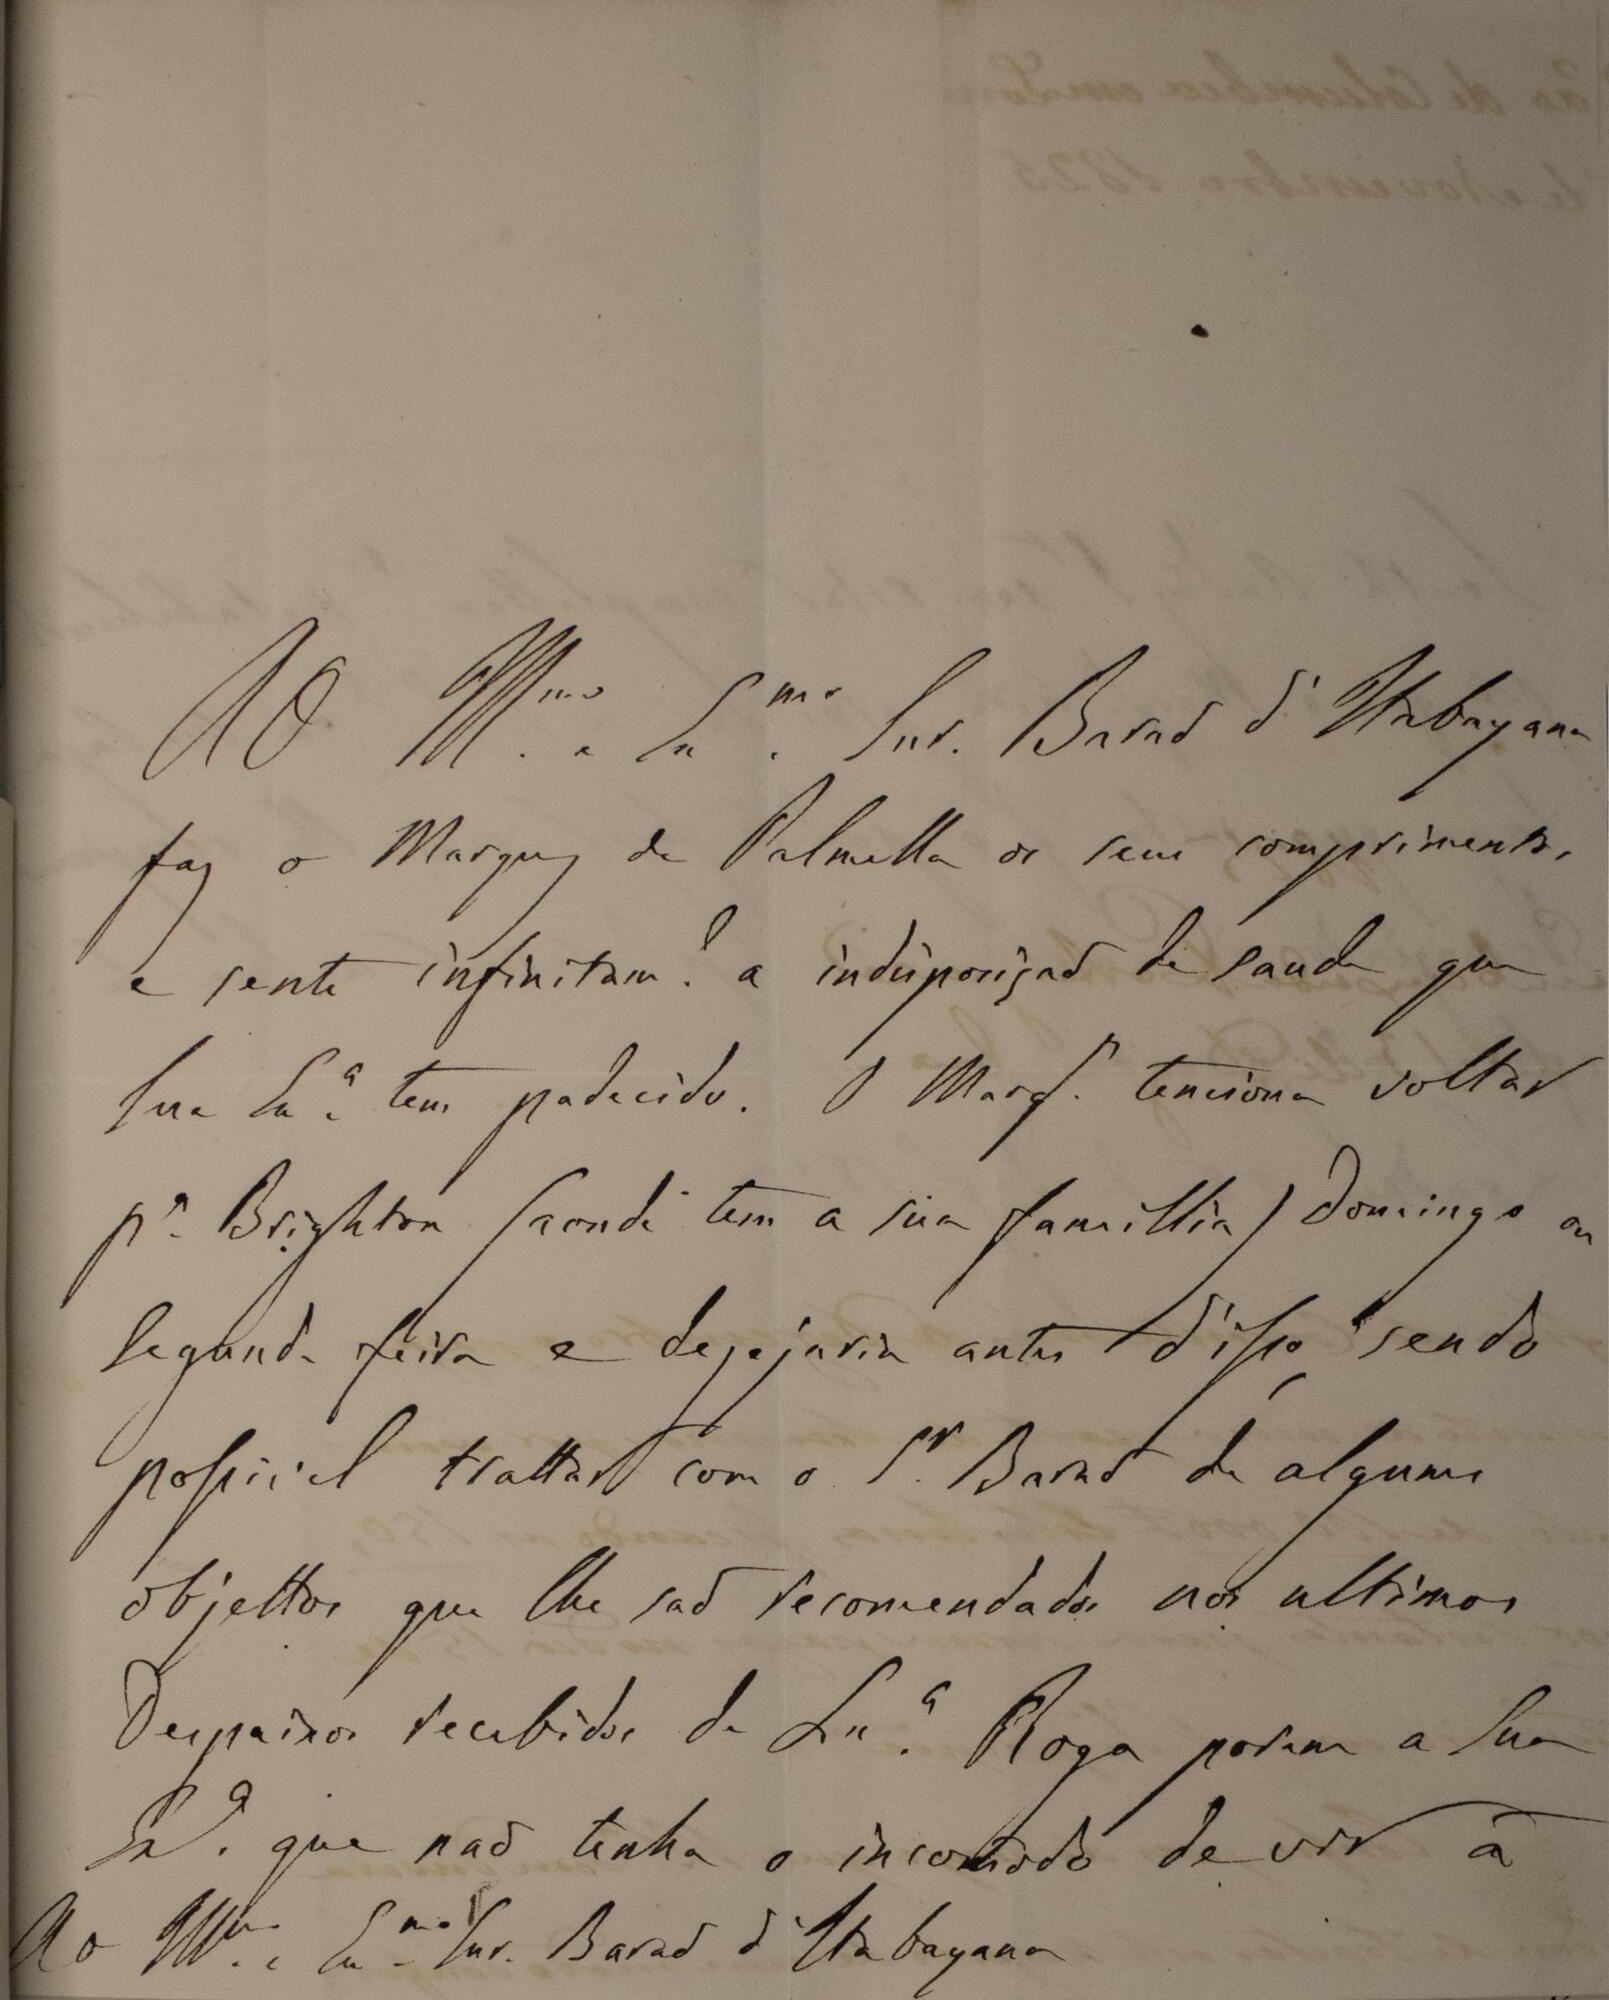 Ao Ill.mo e Ex.mo Snr. Baraõ d'Itabayana
faz o Marquez de Palmella os seus comprimentos,
e sente infinitam.te a indisposiçaõ de saude que
Sua Ex.a tem padecido. O Marq.z tenciona voltar
p.a Brighton (aonde tem a sua famillia) Domingo ou
Segunda feira e dezejaria antes d'isso, sendo
possivel trattar com o S.r Baraõ de alguns
objettos que lhe saõ recomendados nos ultimos
Despaixos recebidos de Lx.a Roga porem a Sua
Ex.a que naõ tenha o incomodo de vir à
Ao Ill.mo e Ex.mo Snr. Baraõ d'Itabayana